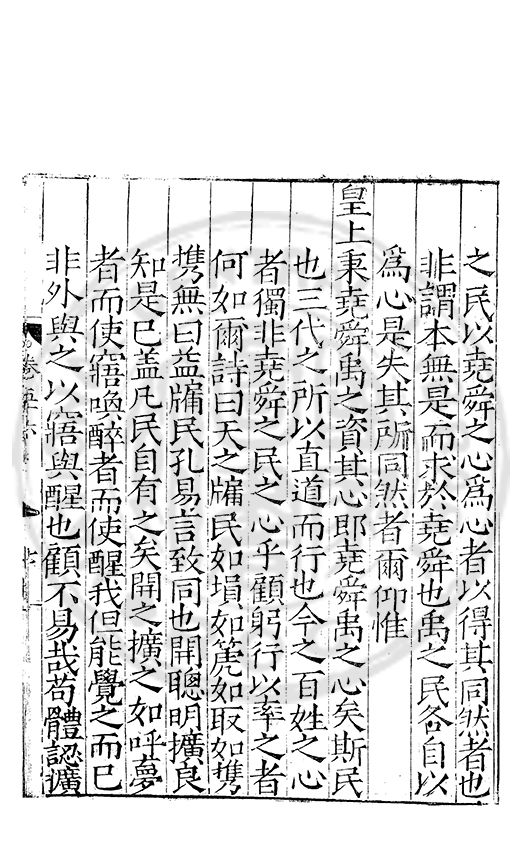 之民以堯舜之心爲心者以得其同然者也
非謂本無是而求於堯舜也禹之民各自以
爲心是失其所同然者爾仰惟
皇上秉堯舜禹之資其心即堯舜禹之心矣斯民
也三代之所以直道而行也今之百姓之心
者獨非堯舜之民之心乎顧躬行以率之者
何如爾詩曰天之牖民如塤如箎如取如携
携無曰益牖民孔易言致同也開聰明擴良
知是已盖凡民自有之矣開之擴之如呼夢
者而使寤喚醉者而使醒我但能覺之而已
非外與之以寤與醒也顧不易哉苟體認擴